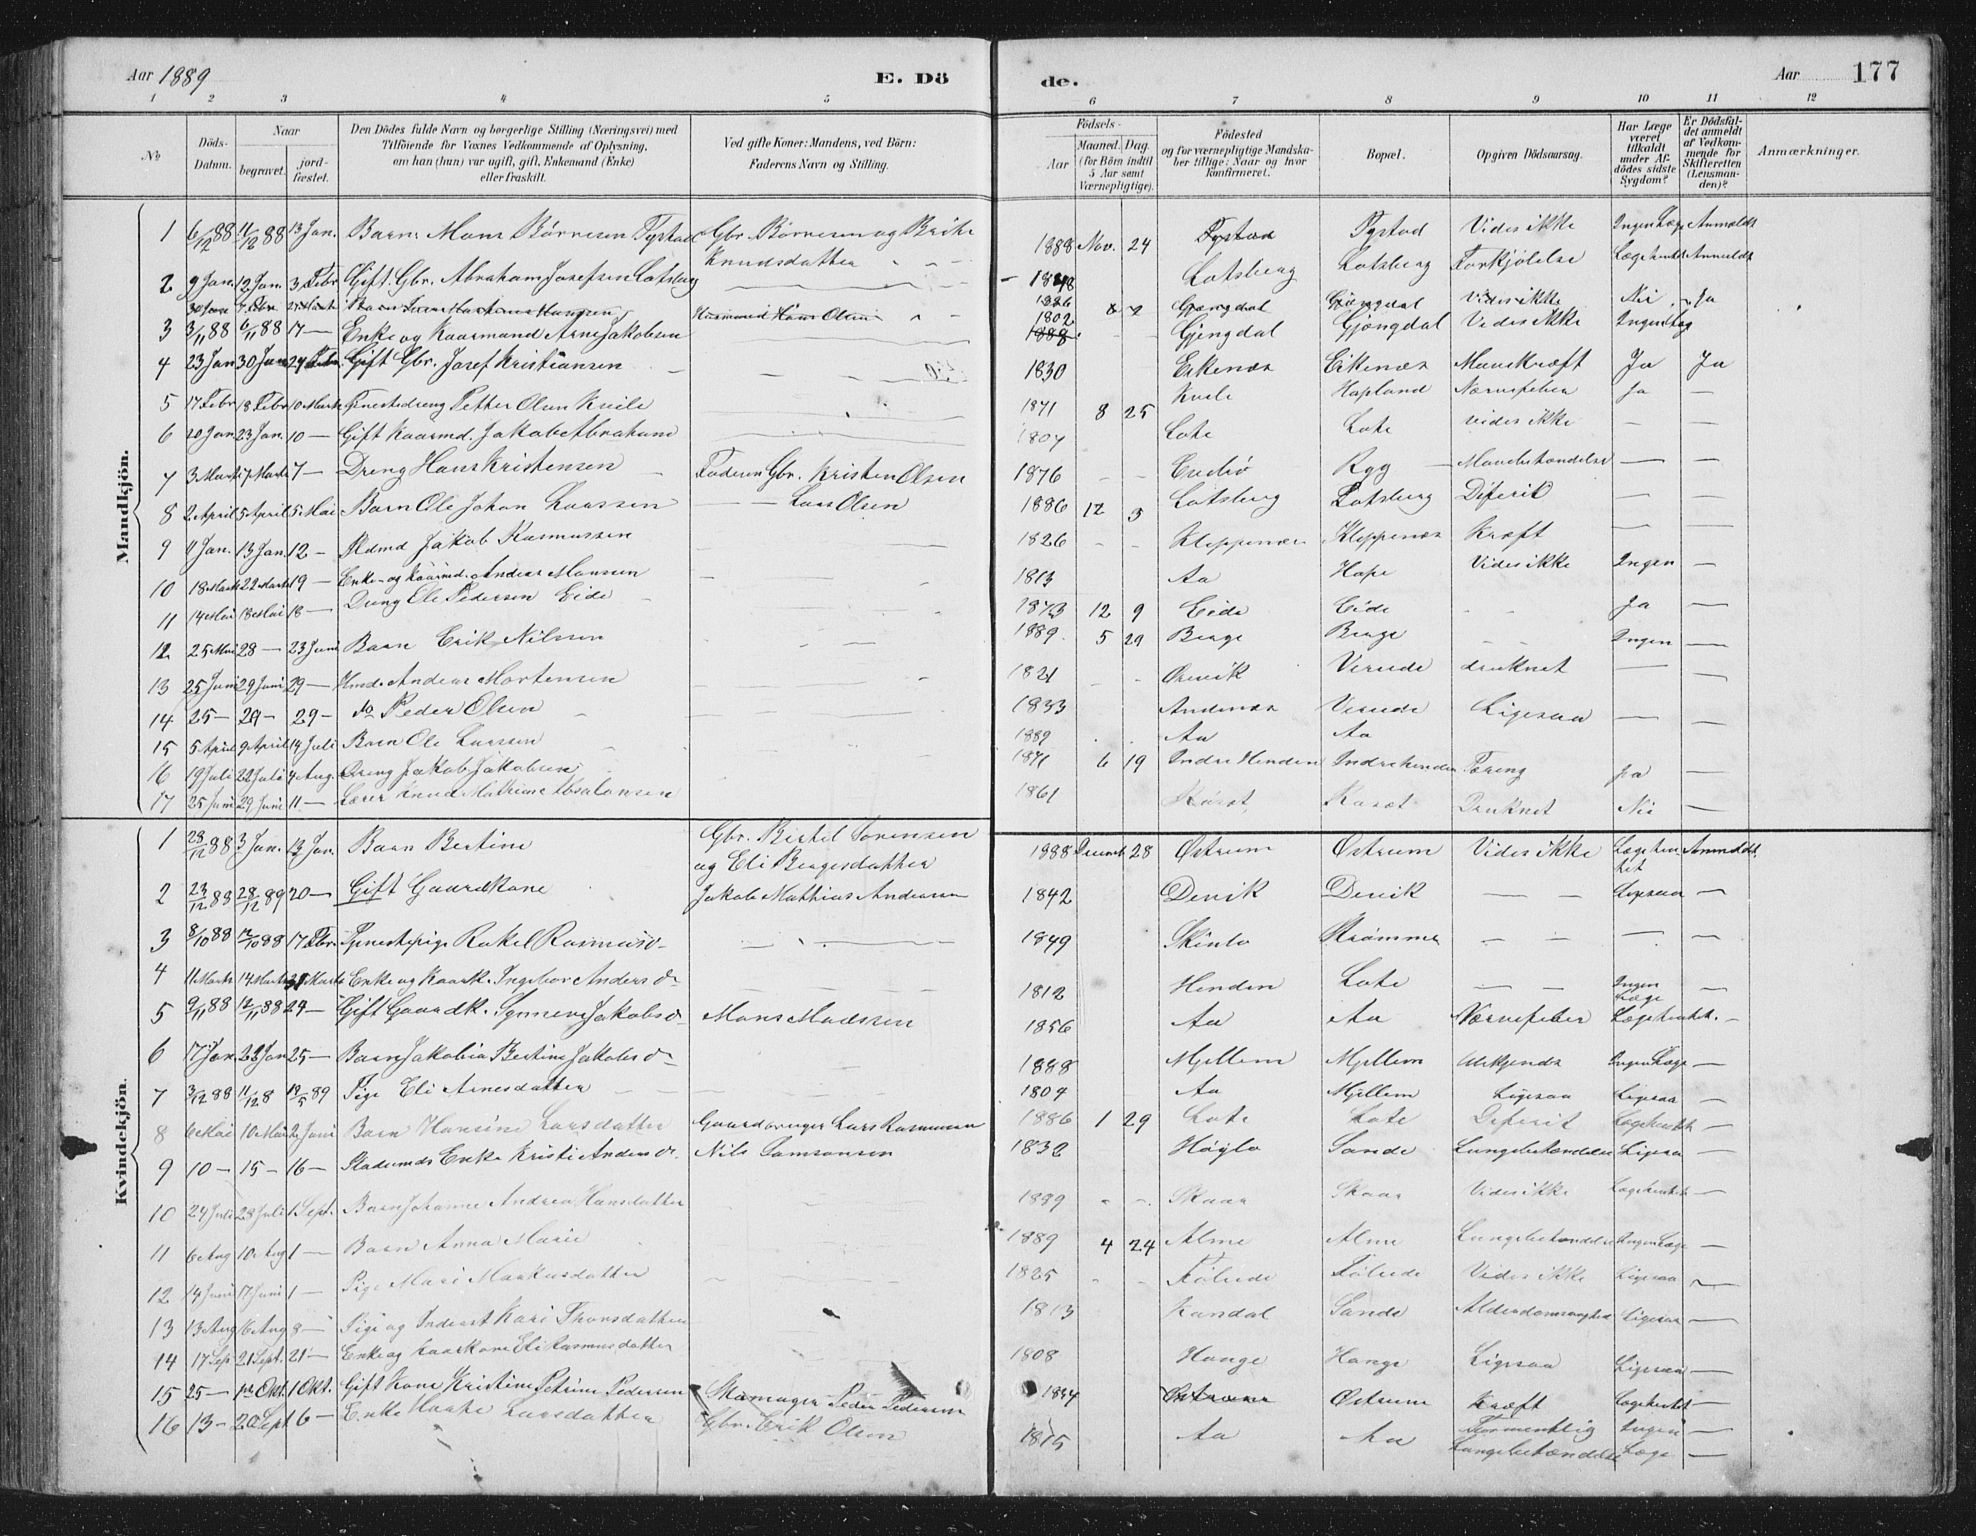 Aar 1889 E. Dö de. Aar 177
1 2 3 4 5 6 7 8 9 10 11 12
No Döds-Datum. Naar begravet. jord-fæstet. Den Dödes fulde Navn og borgerlige Stilling (Næringsvei) med Tilföiende for Voxnes Vedkommende af Oplysning, om han (hun) var ugift, gift, Enkemand (Enke) eller fraskilt. Ved gifte Koner: Mandens, ved Börn: Faderens Navn og Stilling. Födsels- Aar Maaned. Dag. (for Börn indtil 5 Aar samt Værnepligtige). Födested og for værnepligtige Mandskaber tillige: Naar og hvor konfirmeret. Bopæl. Opgiven Dödsaarsag. Har Læge været tilkaldt under Afdödes sidste Sygdom? Er Dödsfaldet anmeldt af Vedkommende for Skifteretten (Lensmanden)? Anmærkninger.
Mandkjön.
1 6/12 88 11/12 88 13 Jan. Barn Mons Börresen Tystad Gbr. Börresen og Brithe Knudsdatter 1888 Nov. 24 Tystad Tystad Vides ikke Ingen Læge Anmeldt
2 9 Jan. 12 Jan. 3 Febr. Gift Gbr. Abraham Josefsen Lotsberg 1848 Lotsberg Lotsberg Forkjölelse Lægehentet Anmeldt
30 Jan 7 Febr. Husmand Hans Olsen 1886 Gjengdal Gjengdal Vides ikke Nei Ja
3 3/11 88 6/11 88 17 — Enke og Kaarmand Arne Jakobsen 1802 1888 Gjengdal Gjengdal Vides ikke Ingen Læg
4 23 Jan 30 Jan 24 Febr. Gift Gbr. Josef Kristiansen 1830 Eikenæs Eikenæs Mavekræft Ja Ja
5 17 Febr 18 Febr 10 Marts Tjenestedreng Petter Olsen Kvile 1871 8 25 Kvile Hopland Nervefeber Ja —
6 20 Jan 23 Jan. 10 — Gift Kaarmd. Jakob Abrahams 1807 Lote Lote vides ikke — —
7 3 Marts 7 Marts 7 — Dreng Hans Kristensen Faderen Gbr. Kristen Olsen 1876 Endbö Ryg — —
8 2 April 5 April 5 Mai Barn Ole Johan Larssen — — Lars Olsen 1886 12 3 Lotsberg Lotsberg Diferit — —
9 11 Jan. 13 Jan. 12 — Jakob Rasmussen 1826 Kleppenæs Kleppenæs Kræft — —
10 18 Marts 22 Marts 19 — Enke- og Kaarmd. Andreas Monsen 1813 Aa Hope Vides ikke Ingen —
11 14 Mai 18 Mai 18 — Dreng Ole Pedersen Eide 1873 12 9 Eide Eide Ja —
12 25 Mai 28 — 23 Juni Barn Erik Nilssen 1889 5 29 Berge Berge — — Ingen —
13 25 Juni 29 Juni 29 — Hmd. Andreas Mortensen 1821 druknet — —
14 25 — 29 — 29 — Do Peder Olsen 1833 Andenæs Ligesaa — —
15 5 April 9 April 14 Juli Barn Ole Larssen 1889 Aa Aa
16 19 Juli 22 Juli 4 Aug. Dreng Jakob Jakobsen 1871 6 19 Indre Henden Indre Henden Tæring ja —
17 25 Juni 29 Juni 11 — Lærer Knud Mathias Absalonsen 1861 Druknet Nei —
Kvindekjön.
1 28/12 88 3 Jan. 13 Jan. Barn Bertine Gbr. Bertel Sørensen og Eli Bergesdatter 1888 Decemb 28 Östrem Östrem Vides ikke Lægehentet Anmeldt.
2 23/12 88 28/12 89 20 — Gift Gaardkone Jakob Mathias Andersen 1842 Devik Devik — — Ligesaa —
3 8/10 88 12/10 88 17 Febr. Tjenestepige Rakel Rasmusd— 1849 Skinlo Strömmen — — — —
4 11 Marts 14 Marts 31 Marts Enke og Kaark. Ingebor Andersd— 1812 Henden Lote — — Ingen Læge —
5 9/11 88 12/11 88 24 — Gift Gaardk. Synneve Jakobsd— Mons Madssen 1856 Aa Aa Nervefeber Lægehentet. —
6 17 Jan. 22 Jan 25 — Barn Jakobia Bertine Jakobsd— 1888 Mjellem Mjellem Ubekjendt Ingen Læge —
7 3/12 88 11/12 8 19/5 89 Pige Eli Arnesdatter 1804 Aa Mjellem Ligesaa Ligesaa —
8 6 Mai 10 Mai 2 Juni Barn Hansine Larsdatter Gaardbruger Lars Rasmussen 1886 1 29 Lote Lote Diferit Lægehentet —
9 10 — 15 — 16 — Enke Kristi Andersd. Nils Samsonsen 1832 Höylo Sande Lungebetændelse Ligesaa —
10 24 Juli 28 Juli 1 Sept. Barn Johanne Andrea Hansdatter 1889 Skaar Skaar Vides ikke Lægehentet —
11 6 Aug 10 Aug 1 — Barn Anna Marie 1889 4 24 Alme Alme Lungebetændelse Ingen Læge —
12 14 Juni 17 Juni 1 — Pige Mari Markusdatter 1825 Vides ikke Ligesaa —
13 13 Aug 16 Aug 8 — Pige og Inderst Kari Thomsdatter 1813 Kandal Sande Alderdomssvaghed Ligesaa —
14 17 Sep 21 Sept. 21 — Enke og Kaarkone Eli Rasmusdatter 1808 Hauge Hauge Ligesaa Ligesaa —
15 25 — 1ste Okt. 1 Okt. Gift Kone Kristine Petrine Pedersen Skomager Peder Pedersen 1834 Östrem Östrem Kræft Lægehentet —
16 13 — 20 Sept 6 — Enke Larsdatter Gbr. Erik Olsen 1815 Aa Aa Formentlig Lungebetændelse Ingen Læge —